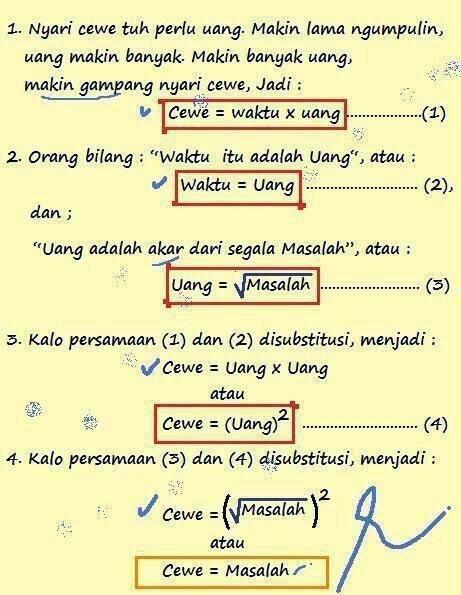 1. Nyari cewe tuh perlu uang. Makin lama ngumpulin,
uang makin banyak. Makin banyak uang,
makin gampang nyari cewe, Jadi :
Cewe = waktu x uang ....................(1)
2. Orang bilang : “Waktu itu adalah Uang“, atau :
Waktu = Uang ........................... (2),
dan ;
“Uang adalah akar dari segala Masalah”, atau :
Uang = √Masalah ........................ (3)
3. Kalo persamaan (1) dan (2) disubstitusi, menjadi :
Cewe = Uang x Uang
atau
Cewe = (Uang)² ............................ (4)
4. Kalo persamaan (3) dan (4) disubstitusi, menjadi :
Cewe = (√Masalah)²
atau
Cewe = Masalah